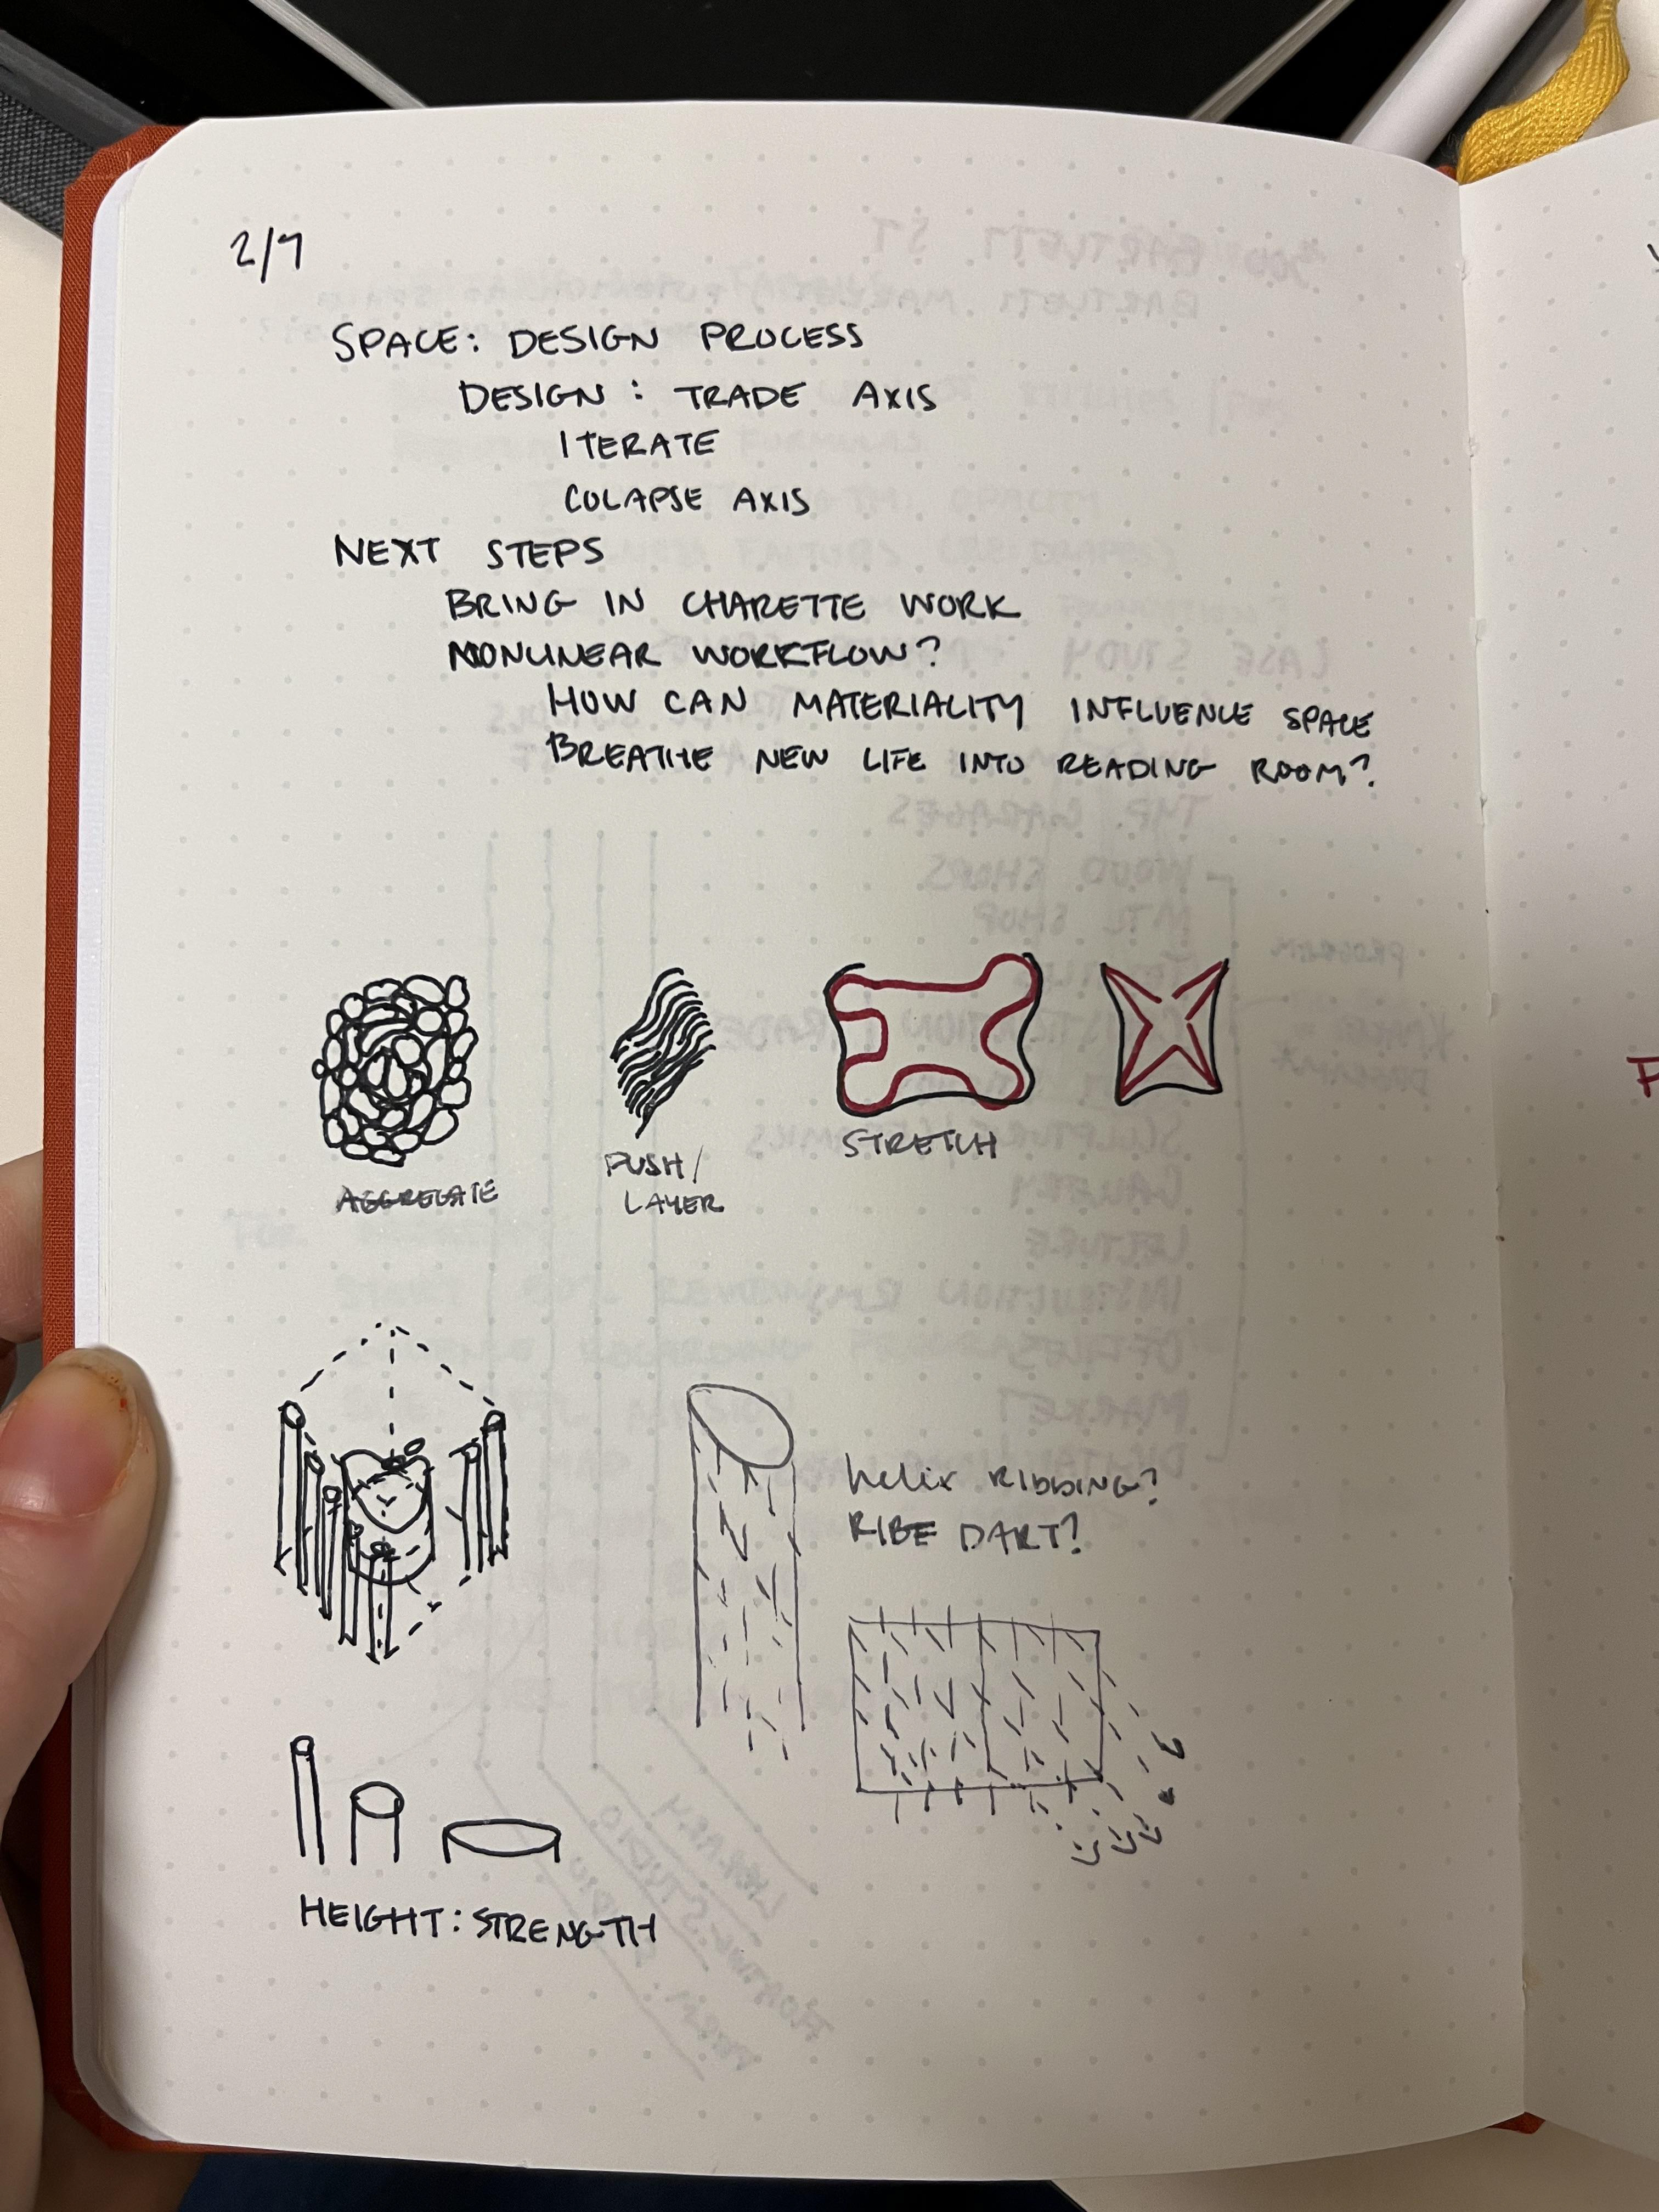 2/7
SPACE: DESIGN PROCESS
DESIGN: TRADE AXIS
ITERATE
COLAPSE AXIS
NEXT STEPS
BRING IN CHARETTE WORK
NONLINEAR WORKFLOW?
HOW CAN MATERIALITY INFLUENCE SPACE
BREATHE NEW LIFE INTO READING ROOM?
AGGREGATE
PUSH/
LAYER
STRETCH
helix RIBBING?
RIBE DART?
HEIGHT: STRENGTH